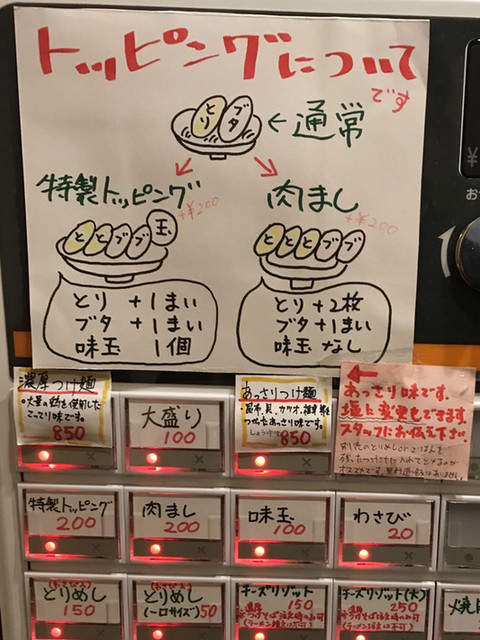 トッピングについて
です
とり
ブタ
←通常
特製トッピング
+¥200
と
と
ブ
ブ
玉
とり +1まい
ブタ +1まい
味玉 1個
肉まし
+¥200
と
と
と
ブ
ブ
とり+2枚
ブタ+1まい
味玉 なし
濃厚つけ麺
こってり味です。
850
大盛り
100
あっさりつけ麺
あっさり味です。
850
あっさり味です。
塩に変更もできます。
スタッフにお伝え下さい。
特製トッピング
200
肉まし
200
味玉
100
わさび
20
とりめし
150
とりめし
(一口サイズ)50
チーズリゾット
150
チーズリゾット(大)
250
¥
お